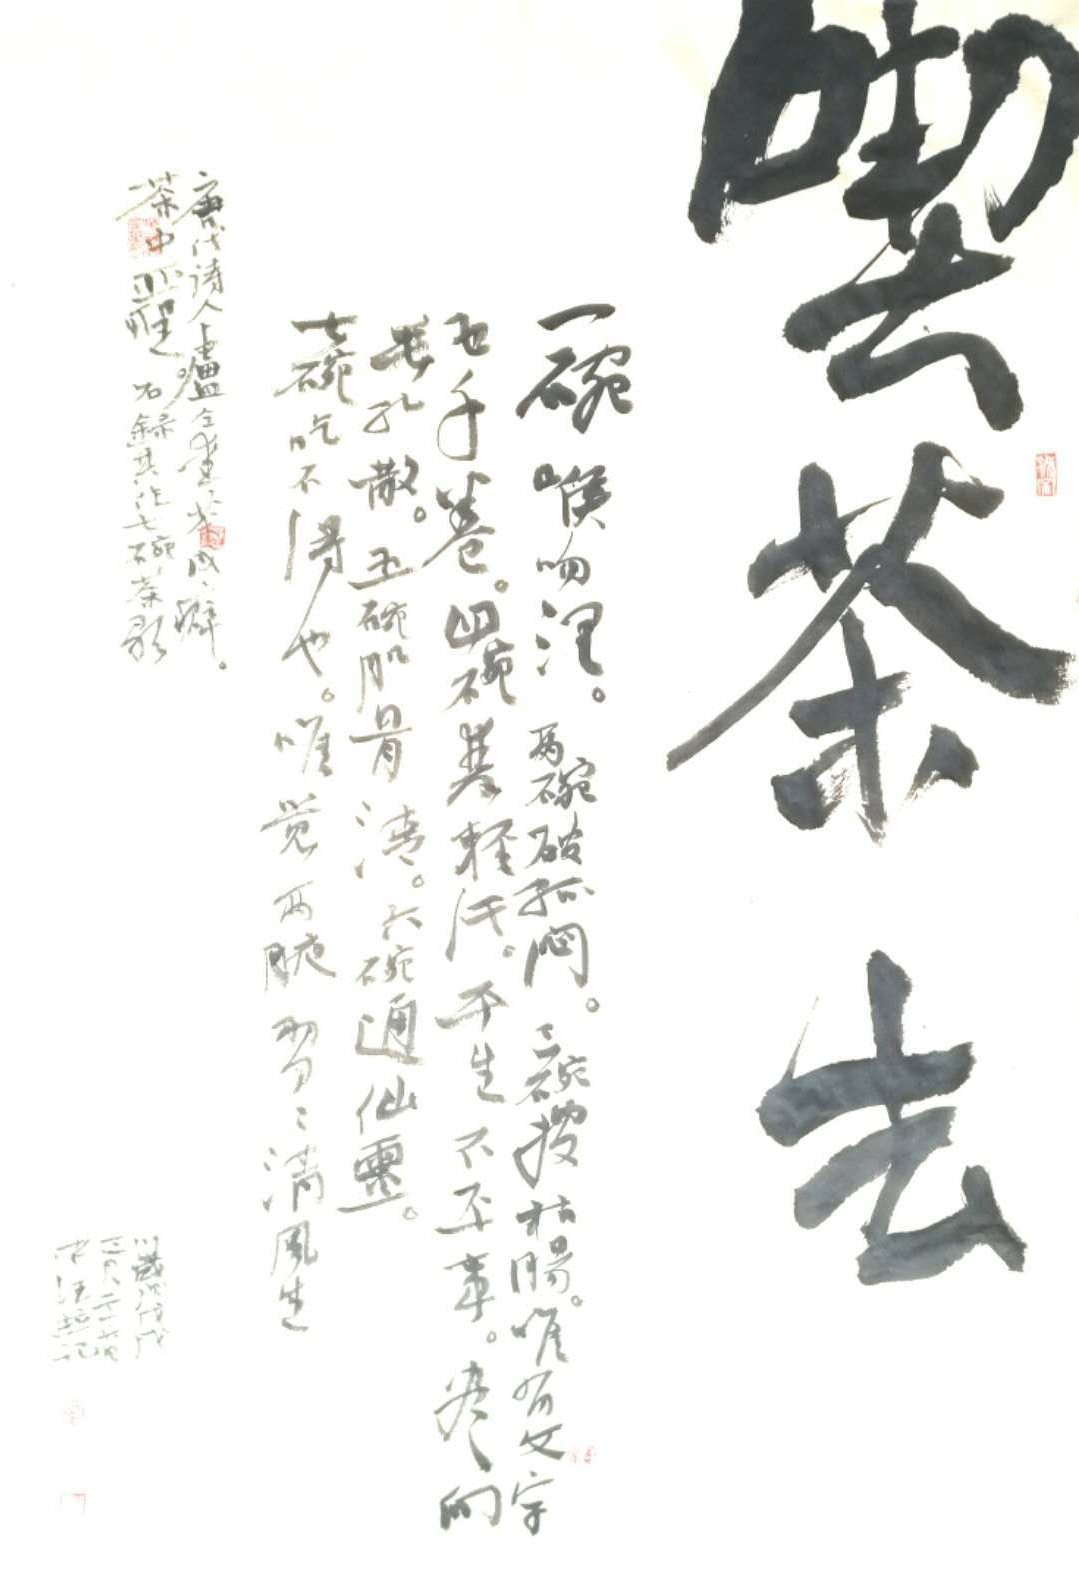 喫茶去
一碗喉吻润。两碗破孤闷。三碗搜枯肠。唯有文字
五千卷。四碗發軽汗。平生不平事。尽向
毛孔散。五碗肌骨清。六碗通仙靈。
七碗吃不得也。唯觉两腋習〻清风生
唐代诗人盧仝愛茶成癖。
茶中亚聖。 録其作七碗茶歌
歲次戊戌